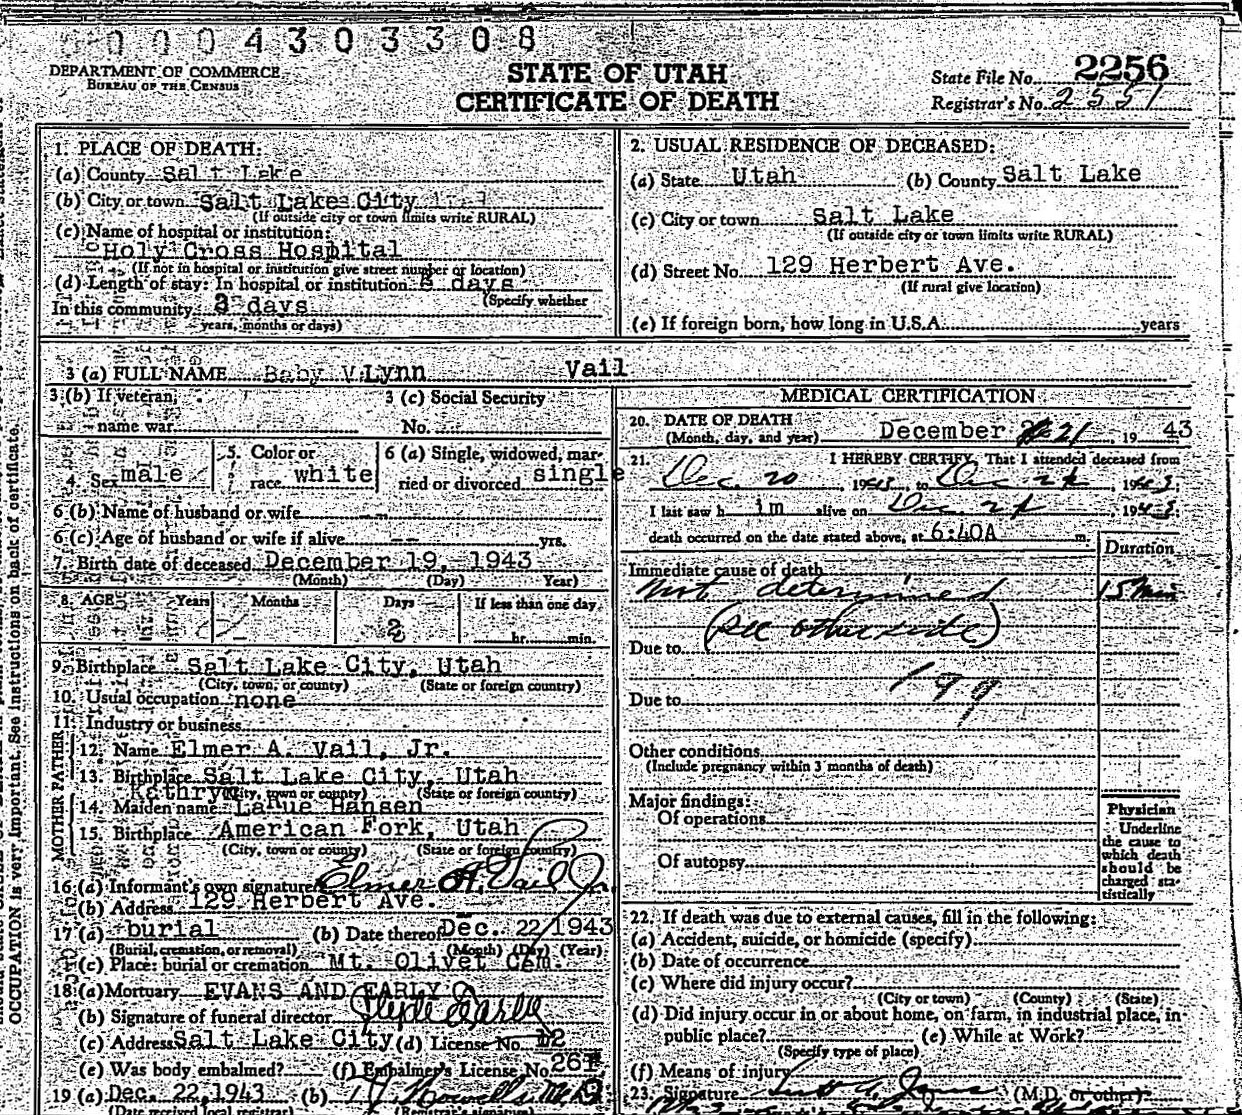 0 0 0 4 3 0 3 3 0 8
DEPARTMENT OF COMMERCE
BUREAU OF THE CENSUS
STATE OF UTAH
CERTIFICATE OF DEATH
State File No. 2256
Registrar's No. 2551
1. PLACE OF DEATH:
(a) County Salt Lake
(b) City or town Salt Lake City
(If outside city or town limits write RURAL)
(c) Name of hospital or institution:
Holy Cross Hospital
(If not in hospital or institution give street number or location)
(d) Length of stay: In hospital or institution days
(Specify whether
In this community 3 days
years, months or days)
2. USUAL RESIDENCE OF DECEASED:
(a) State Utah (b) County Salt Lake
(c) City or town Salt Lake
(If outside city or town limits write RURAL)
(d) Street No. 129 Herbert Ave.
(If rural give location)
(e) If foreign born, how long in U.S.A. years
3 (a) FULL NAME Baby V Lynn Vail
3 (b) If veteran, name war
3 (c) Social Security No.
4. Sex male 5. Color or race white 6 (a) Single, widowed, married or divorced single
6 (b) Name of husband or wife --
6 (c) Age of husband or wife if alive -- yrs.
7. Birth date of deceased December 19, 1943
(Month) (Day) Year)
8. AGE Years Months Days If less than one day
2 hr. min.
9. Birthplace Salt Lake City, Utah
(City, town, or county) (State or foreign country)
10. Usual occupation none
11. Industry or business
FATHER
12. Name Elmer A. Vail, Jr.
13. Birthplace Salt Lake City, Utah
(City, town or county) (State or foreign country)
MOTHER
Kathryn
14. Maiden name LaRue Hansen
15. Birthplace American Fork, Utah
(City, town or county) (State or foreign country)
16 (a) Informant's own signature Elmer A. Vail Jr.
(b) Address 129 Herbert Ave.
17 (a) burial (b) Date thereof Dec. 22/1943
(Burial, cremation, or removal) (Month) (Day) (Year)
(c) Place: burial or cremation Mt. Olivet Cem.
18 (a) Mortuary EVANS AND EARLY
(b) Signature of funeral director
(c) Address Salt Lake City (d) License No. 12
(e) Was body embalmed? (f) Embalmer's License No. 261
19 (a) Dec. 22, 1943 (b)
(Date received local registrar) (Registrar's signature)
MEDICAL CERTIFICATION
20. DATE OF DEATH
(Month, day, and year) December 21, 19 43
21. I HEREBY CERTIFY, That I attended deceased from
Dec. 20, 1943, to Dec. 21, 1943,
I last saw h im alive on Dec. 21, 1943,
death occurred on the date stated above, at 6:40A m.
Duration
Immediate cause of death
Not determined 15 Min
(see other side)
Due to
199
Due to
Other conditions
(Include pregnancy within 3 months of death)
Major findings:
Of operations
Of autopsy
Physician
Underline
the cause to
which death
should be
charged sta-
tistically
22. If death was due to external causes, fill in the following:
(a) Accident, suicide, or homicide (specify)
(b) Date of occurrence
(c) Where did injury occur?
(City or town) (County) (State)
(d) Did injury occur in or about home, on farm, in industrial place, in
public place? (e) While at Work?
(Specify type of place)
(f) Means of injury
23. Signature (M.D. or other)
OCCUPATION is very important. See instructions on back of certificate.